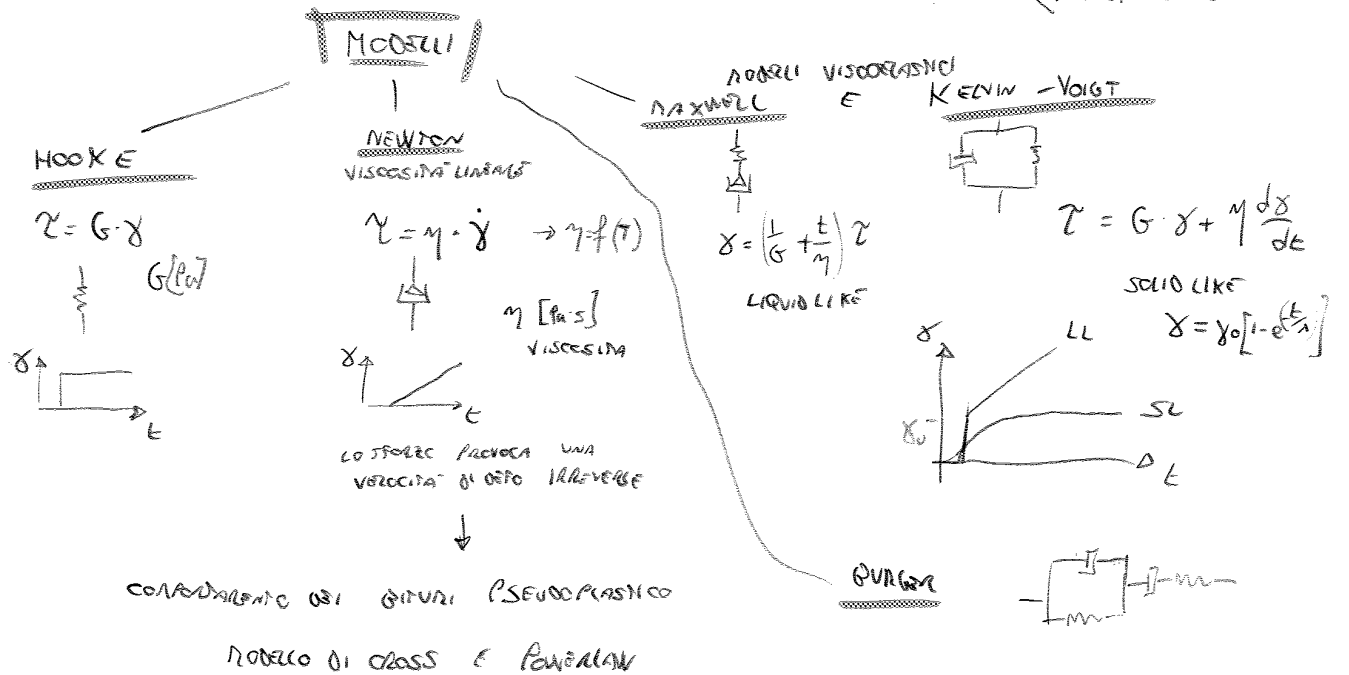 MODELLI
HOOKE
τ = G·γ
G[Pa]
γ
t
NEWTON
VISCOSITÀ LINEARE
τ = η·γ̇ → η=f(T)
η [Pa·s]
VISCOSITÀ
γ
t
LO SFORZO PROVOCA UNA
VELOCITÀ DI DEFO IRREVERSE
COMPORTAMENTO DEI BITUMI PSEUDOPLASTICO
MODELLO DI CROSS E POWERLAW
MODELLI VISCOELASTICI
MAXWELL E KELVIN - VOIGT
γ = (1/G + t/η) τ
LIQUID LIKE
τ = G·γ + η dγ/dt
SOLID LIKE
γ = γ0[1-e^(-t/λ)]
γ
LL
γ0
SL
t
BURGER